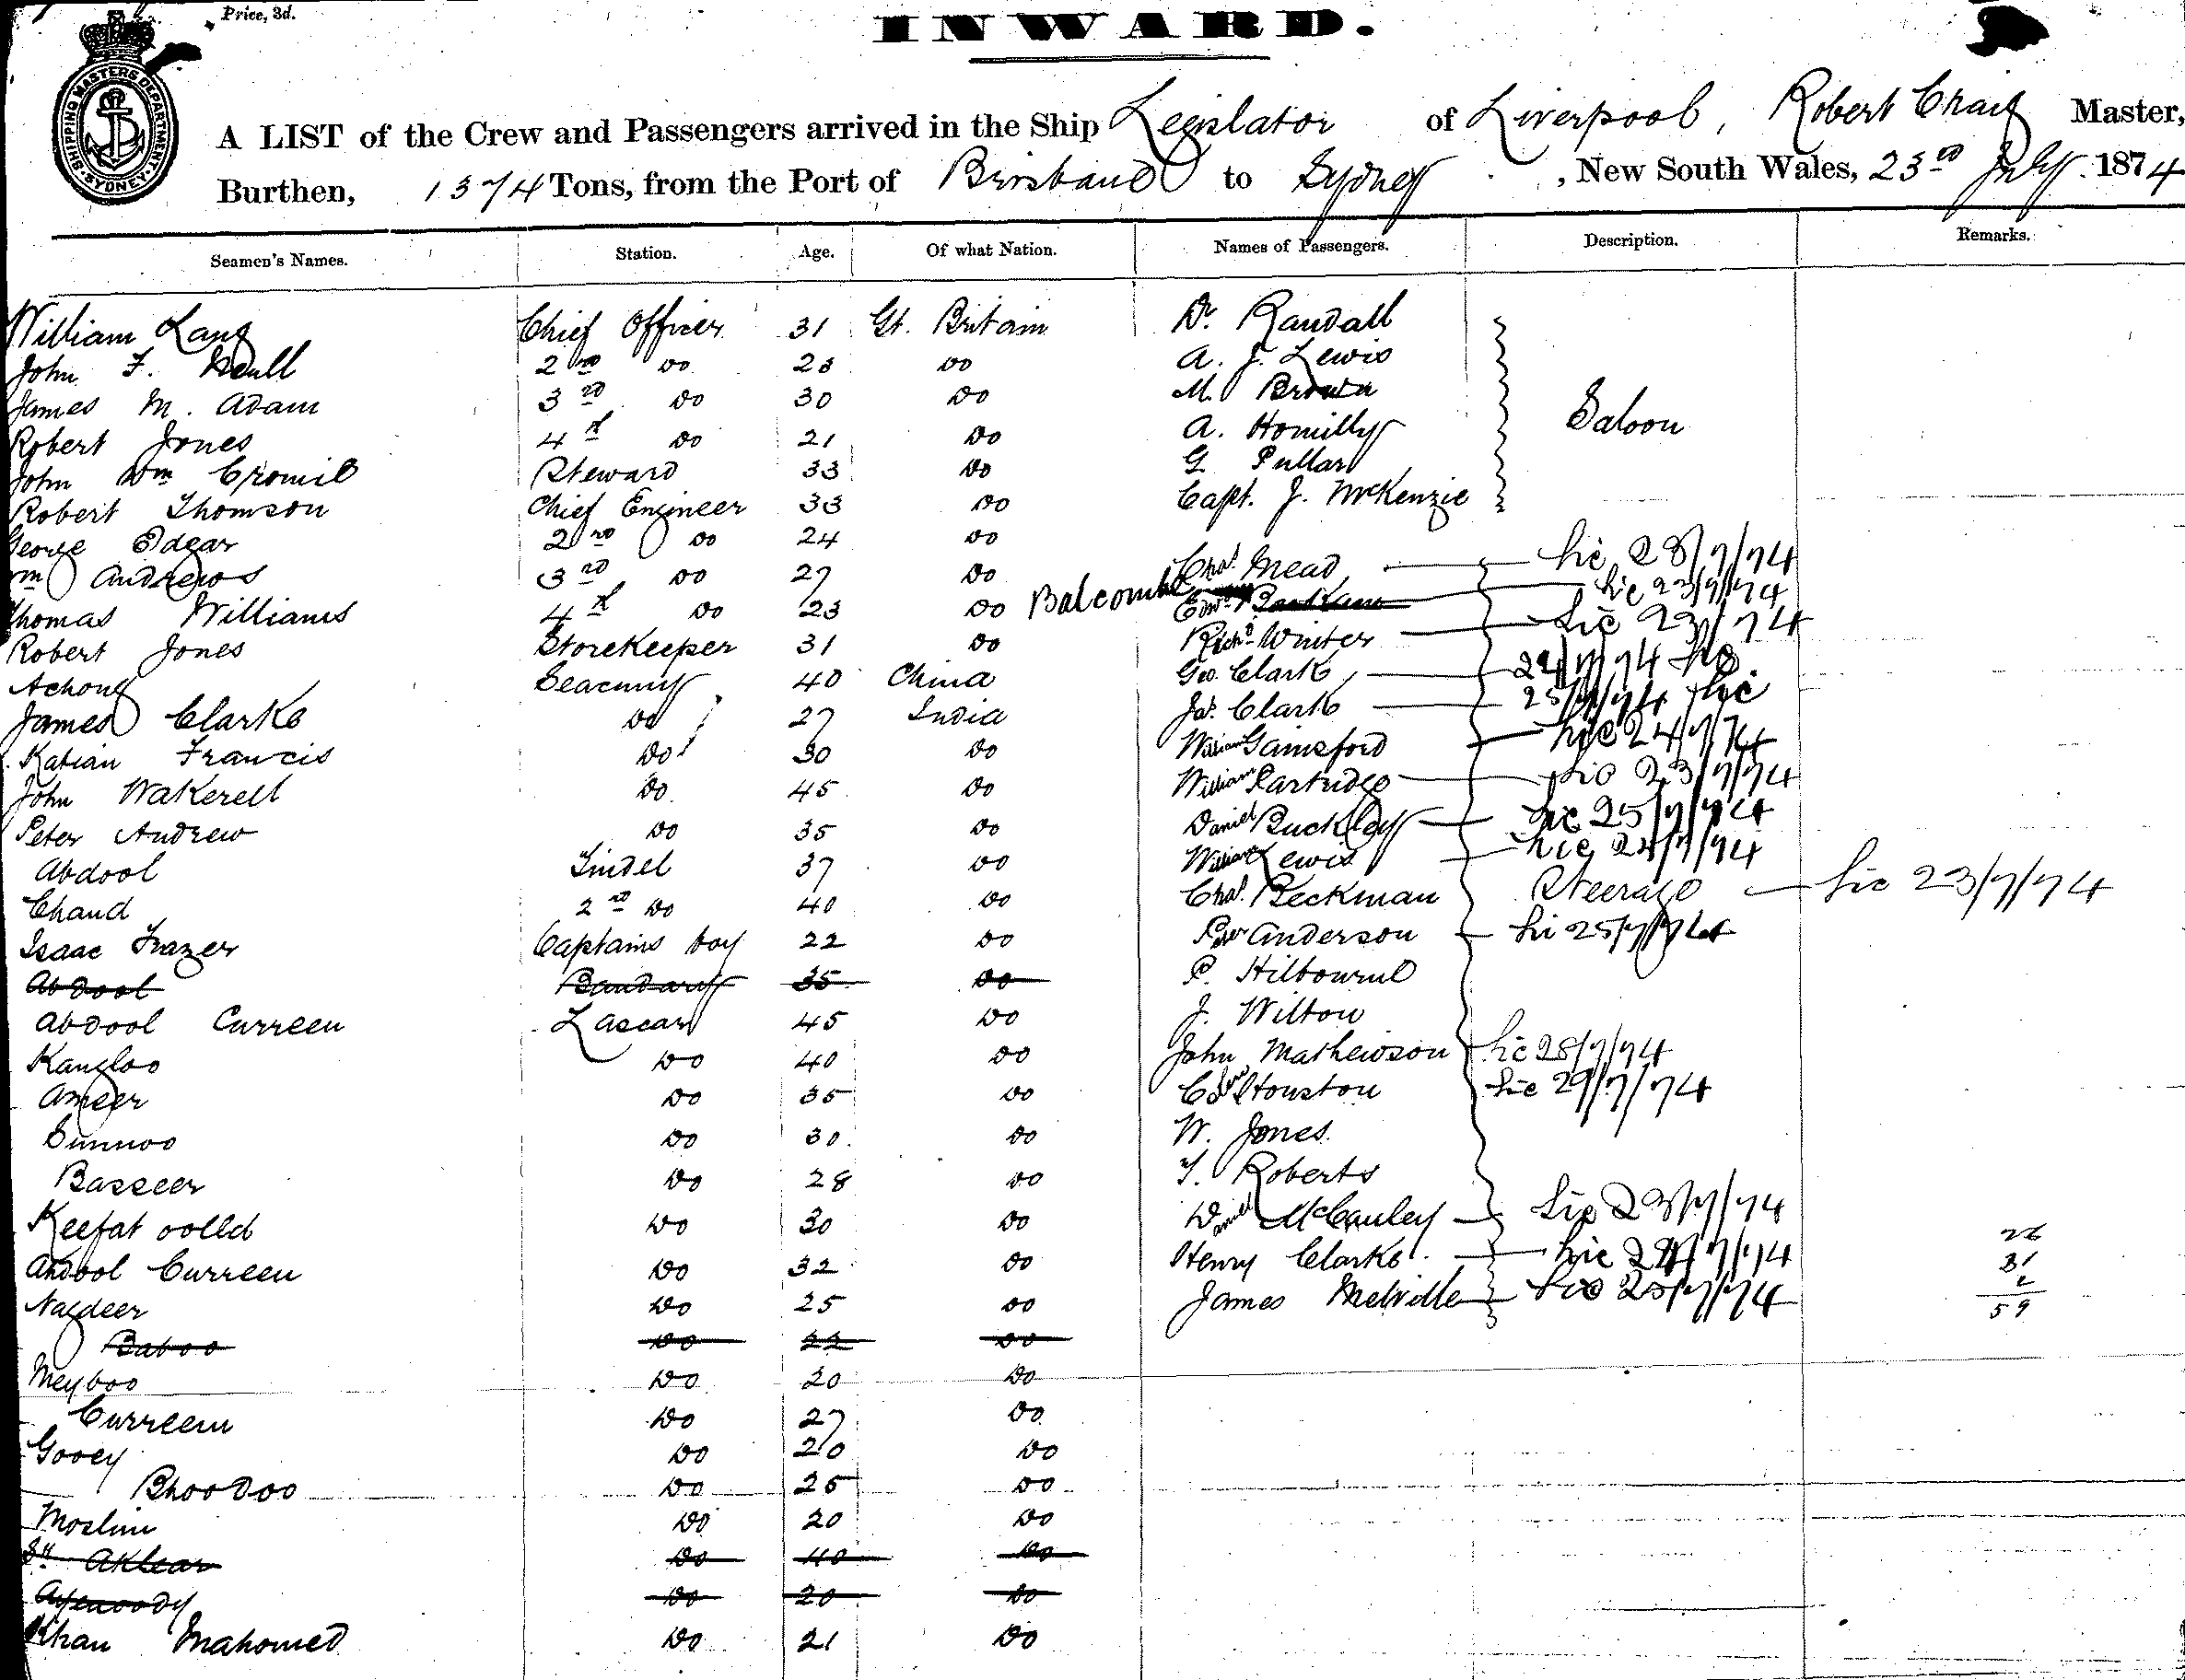 Price, 3d.
INWARD.
SHIPPING MASTERS DEPARTMENT SYDNEY
A LIST of the Crew and Passengers arrived in the Ship Legislator of Liverpool, Robert Craig Master,
Burthen, 1374 Tons, from the Port of Brisbane to Sydney, New South Wales, 23rd July 1874
Seamen's Names. Station. Age. Of what Nation. Names of Passengers. Description. Remarks.
William Lang Chief Officer 31 Gt. Britain Dr. Randall
John F. 2nd Do 23 Do A. J. Lewis
James M. Adam 3rd Do 30 Do M. Brown
Robert Jones 4th Do 21 Do A. Homilly Saloon
John Wm Steward 33 Do G. Pullar
Robert Thomson Chief Engineer 33 Do Capt. J. McKenzie
George Edgar 2nd Do 24 Do
Wm Andrews 3rd Do 27 Do Chas. Mead Lic 23/7/74
Thomas Williams 4th Do 23 Do Balcombe Edwd Lic 23/7/74
Robert Jones Storekeeper 31 Do Richd Winter Lic 23/74
Achong Seacunny 40 China Geo. Clark 24/7/74 Lic
James Clarke Do 27 India Jas. Clark 25/7/74 Lic
Katian Francis Do 30 Do William Gainsford Lic 24/7/74
John Wakerell Do 45 Do William Partridge Lic 23/7/74
Peter Andrew Do 35 Do Daniel Buckley Lic 25/7/74
Abdool Tindel 37 Do William Lewis Lic 24/7/74
Chand 2nd Do 40 Do Chas. Beckman Steerage Lic 23/7/74
Isaac Frazer Captains boy 22 Do Peter Anderson Lic 25/7/74
Abdool Bandary 35 Do P. Hilbourne
Abdool Curreem Lascar 45 Do J. Wilton
Kangloo Do 40 Do John Mathewson Lic 28/7/74
Ameer Do 35 Do Houston Lic 29/7/74
Sunnoo Do 30 Do W. Jones
Basseer Do 28 Do T. Roberts
Keefat oolld Do 30 Do Daniel McCauley Lic 23/7/74
Abdool Curreem Do 32 Do Henry Clarke Lic 24/7/74
Naydeer Do 25 Do James Melville Lic 25/7/74
26
31
2
59
Baboo Do 22 Do
Meyboo Do 20 Do
Curreem Do 27 Do
Gooey Do 20 Do
Bhoodoo Do 25 Do
Moslim Do 20 Do
Aklear Do 40 Do
Ayenoody Do 20 Do
Khan Mahomed Do 21 Do